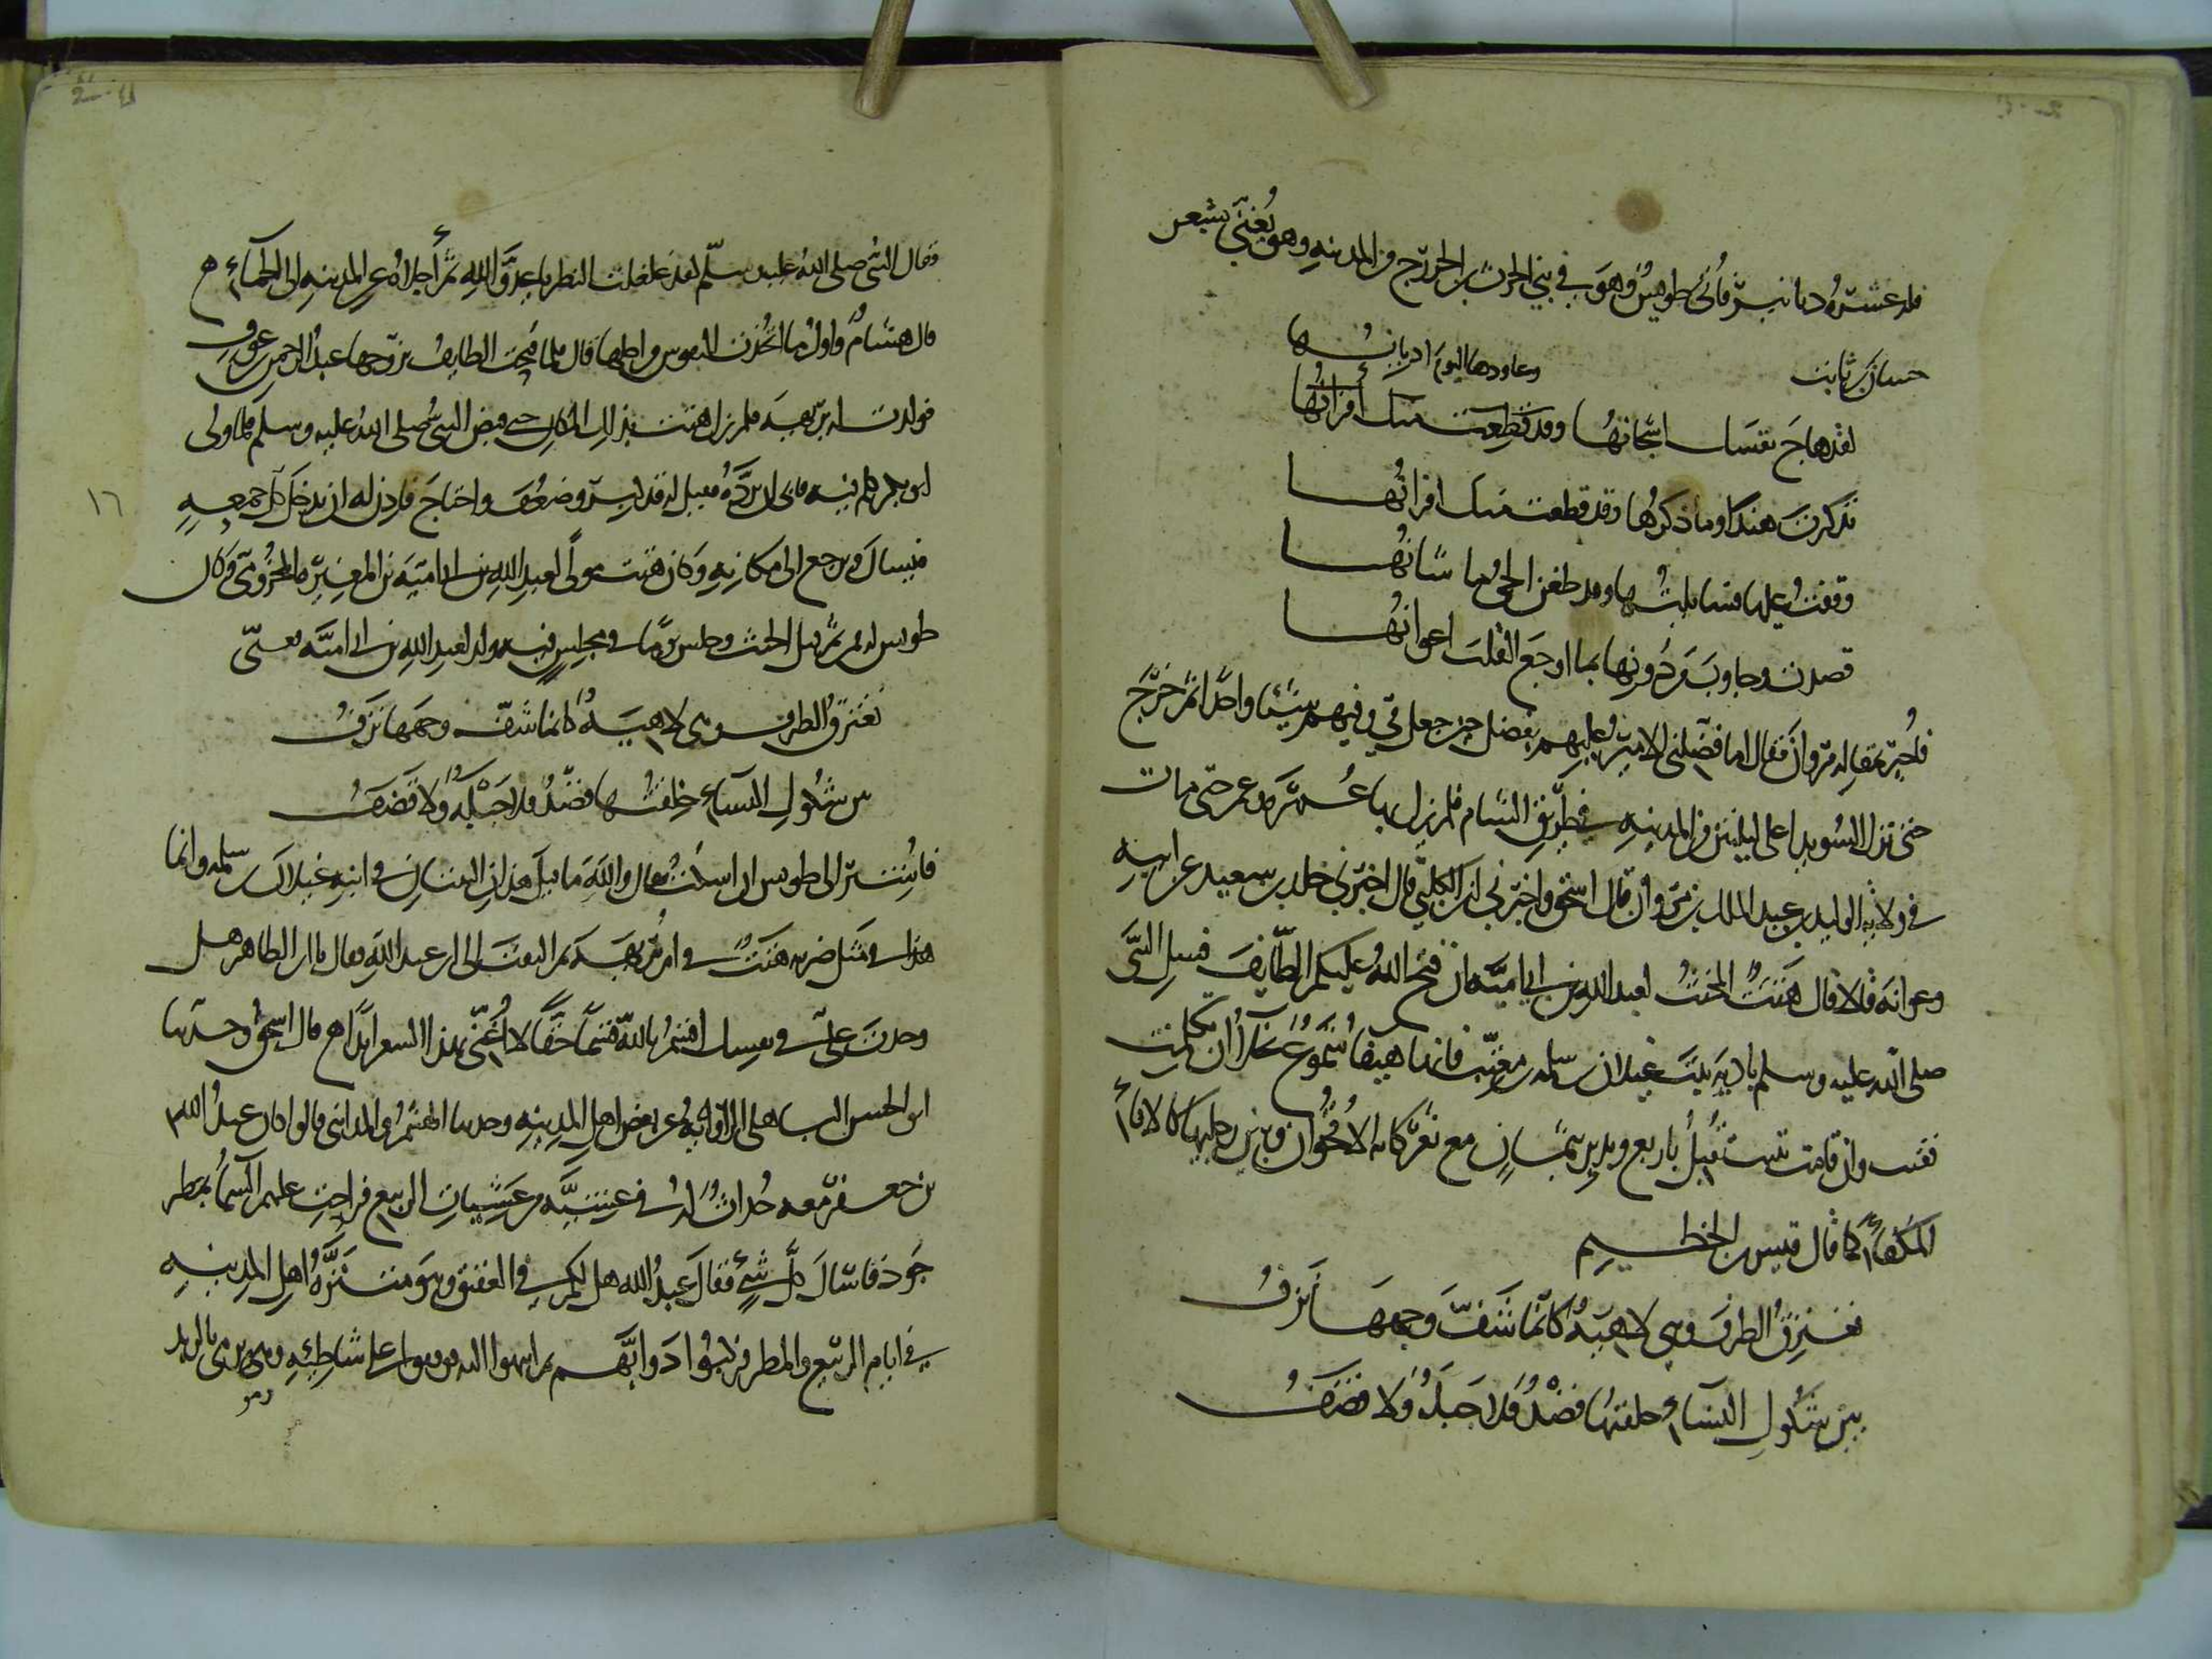 فله عشرة دنانير فأتي طويس وهو في بني الحرث بن الخزرج من المدينة وهو يغني بشعر
حسان بن ثابت
وعاودها اليوم اديانها
لقد هاج نفسك اشجانها وقد قطعت منك أقرانها
تذكرت هندا وما ذكرها وقد قطعت منك اقرانها
وقفت عليها فساءلتها وقد ظعن الحي ما شانها
فصدت وجاوب من دونها بما اوجع القلب اعوانها
فأخبر بمقالة مروان فقال اما فضلني الامير عليهم بفضل حتى جعل في وفيهم شيئا واحدا ثم خرج
حتى نزل السويدا على ليلتين من المدينة في طريق الشام فلم يزل بها عمره حتى مات
في ولاية الوليد بن عبد الملك بن مروان قال اسحق واخبرني ابن الكلبي قال اخبرني خلد بن سعيد عن ابيه
وعوانه قالا قال هنت المخنث لعبد الله بن ابي امية ان فتح الله عليكم الطائف فسل النبي
صلى الله عليه وسلم بادية بنت غيلان بن سلمه بن معتب فانها هيفا شموع نجلا ان تكلمت
تغنت وان قامت تثنت تقبل باربع وتدبر بثمان مع ثغر كانه الاقحوان وبين رجليها كالاناء
المكفأ كما قال قيس بن الخطيم
تغترق الطرف وهي لاهية كأنما شف وجهها نزف
بين شكول النساء خلقتها قصد فلا جبلة ولا قضف
فقال النبي صلى الله عليه وسلم لقد غلغلت النظر يا عدو الله ثم أجلاه عن المدينة الى الحماء
قال هشام واول ما اتخذت النعوش من اجلها قال فلما فتحت الطايف تزوجها عبد الرحمن بن عوف
فولدت له بريهه فلم يزل هنت بذلك المكان حتى قبض النبي صلى الله عليه وسلم فلما ولي
ابو بكر كلم فيه فابى ان يرده فقيل له قد كبر وضعف واحتاج فاذن له ان يدخل كل جمعة
١٦
فيسال ويرجع الى مكانه وكان هنت مولى لعبد الله بن ابي امية بن المغيرة المخزومي وكان
طويس له فمن ثم قبل الخنث وجلس يوما في مجلس فيه ولد لعبد الله بن ابي امية فغنى
تغترق الطرف وهي لاهية كانما شف وجهها نزف
بين شكول النساء خلقتها قصد فلا جبلة ولا قضف
فاشير الى طويس ان اسكت فقال والله ما قيل هذان البيتان في ابنة غيلان بن سلمه وانما
هذا مثل ضربه هنت في ام بريهه ثم التفت الى ابن عبد الله فقال يا ابن الطاهر هل
وجدت علي في نفسك اقسم بالله قسما حقا لا أغني بهذا الشعر ابدا قال اسحق وحدثنا
ابو الحسن الباهلي الراوية عن بعض اهل المدينة وحدثنا الهيثم والمدائني قالوا كان عبد الله
بن جعفر معه خدان له في عشية من عشيات الربيع فراحت عليهم السماء بمطر
جود فاسال كل شيء فقال عبد الله هل لكم في العقيق وهو متنزه اهل المدينة
في ايام الربيع والمطر فركبوا دوابهم ثم انتهوا اليه فوقفوا على شاطئه وهو يرمي بالزبد